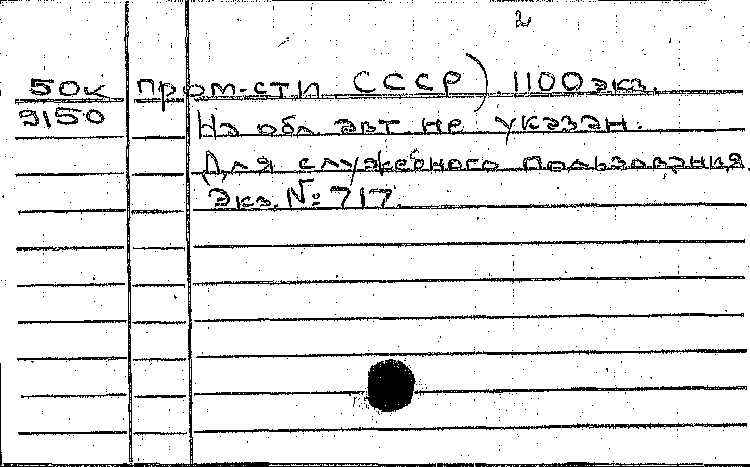 2
50к пром-сти СССР). 1100 экз.
9150 На обл авт. не указан.
Для служебного пользования
Экз. № 717.